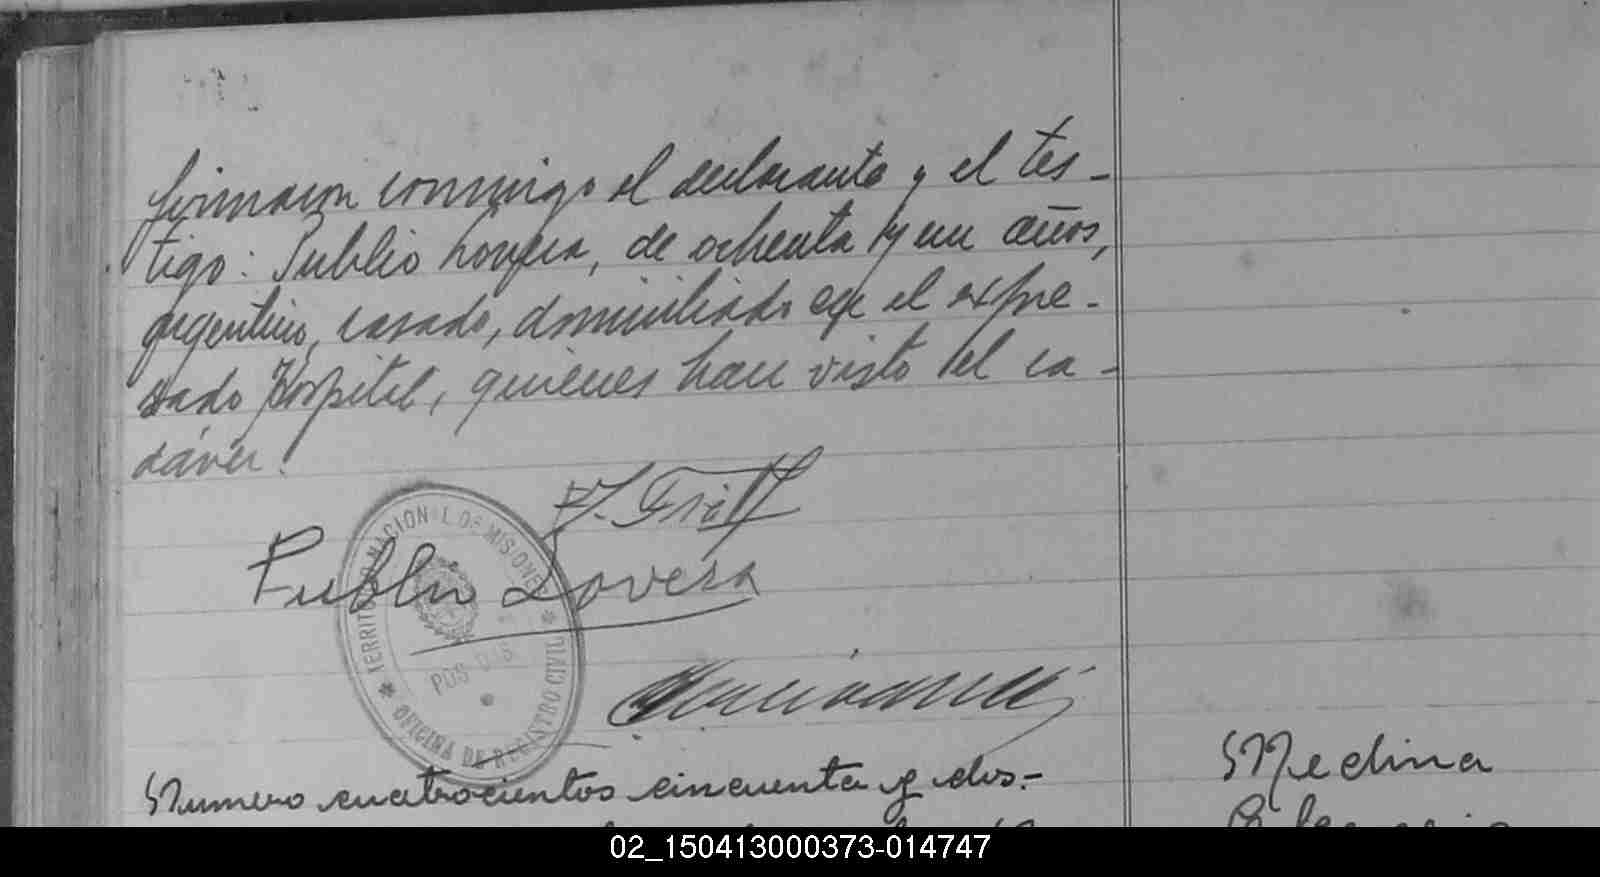 firmaron conmigo el declarante y el tes-
tigo: Publio Lovera, de ochenta y un años,
argentino, casado, domiciliado en el expre-
sado Hospital, quienes han visto el ca-
dáver.
Publio Lovera
TERRITORIO NACIONAL DE MISIONES
POSADAS
* OFICINA DE REGISTRO CIVIL *
Numero cuatrocientos cincuenta y dos.-
Medina
02_150413000373-014747